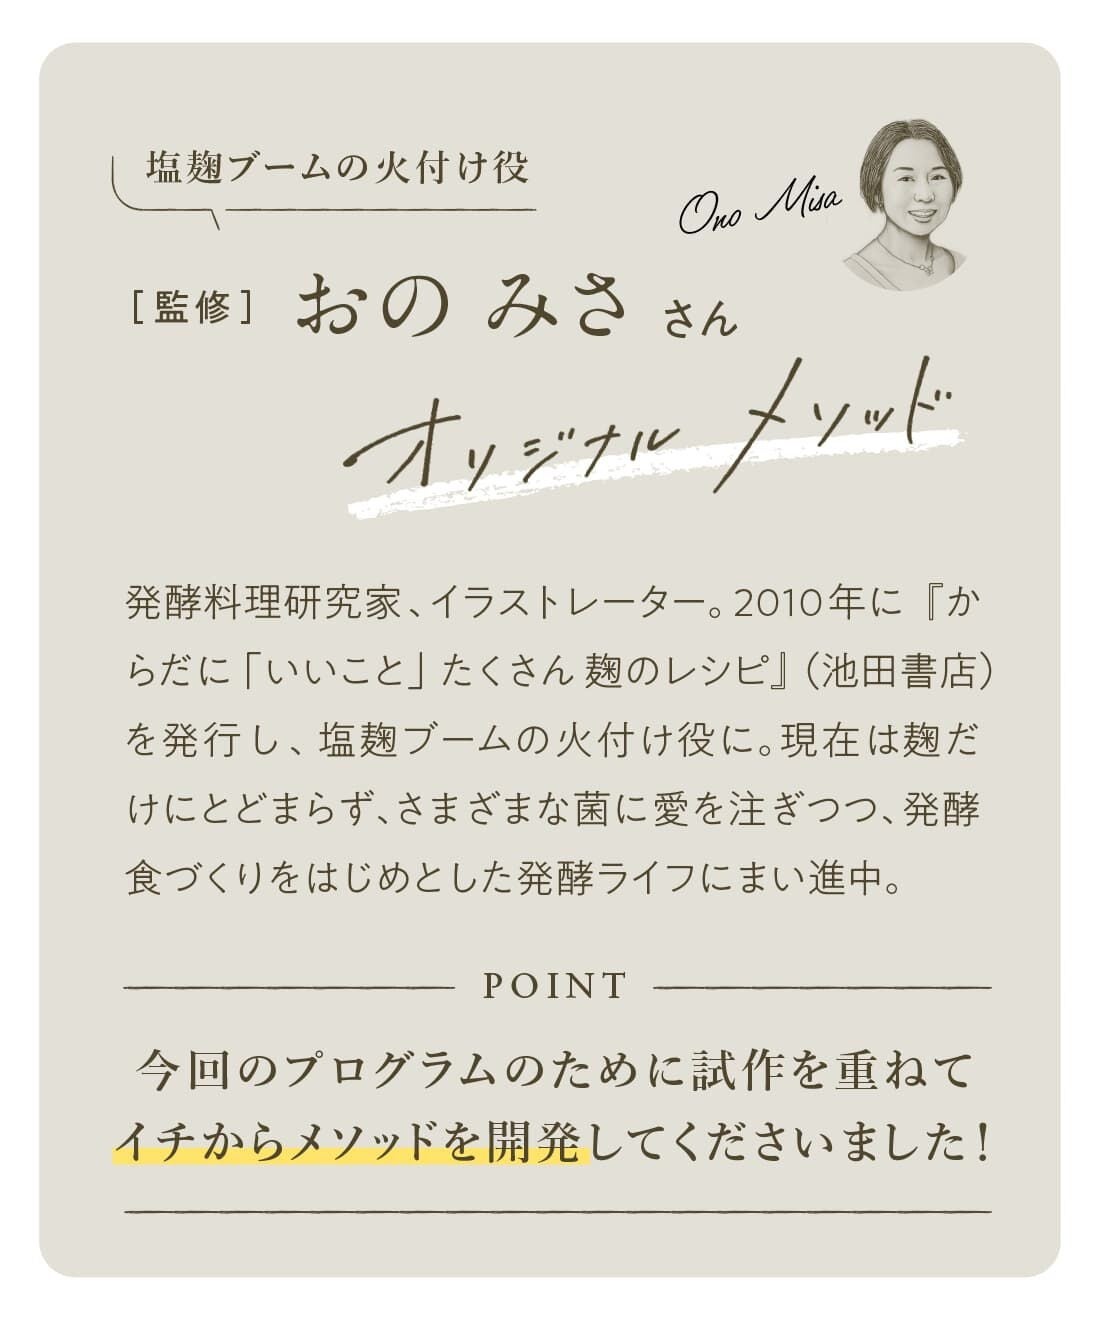 塩麹ブームの火付け役
Ono Misa
[監修] おの みさ さん
オリジナル メソッド
発酵料理研究家、イラストレーター。2010年に『か
らだに「いいこと」たくさん 麹のレシピ』(池田書店)
を発行し、塩麹ブームの火付け役に。現在は麹だ
けにとどまらず、さまざまな菌に愛を注ぎつつ、発酵
食づくりをはじめとした発酵ライフにまい進中。
POINT
今回のプログラムのために試作を重ねて
イチからメソッドを開発してくださいました!